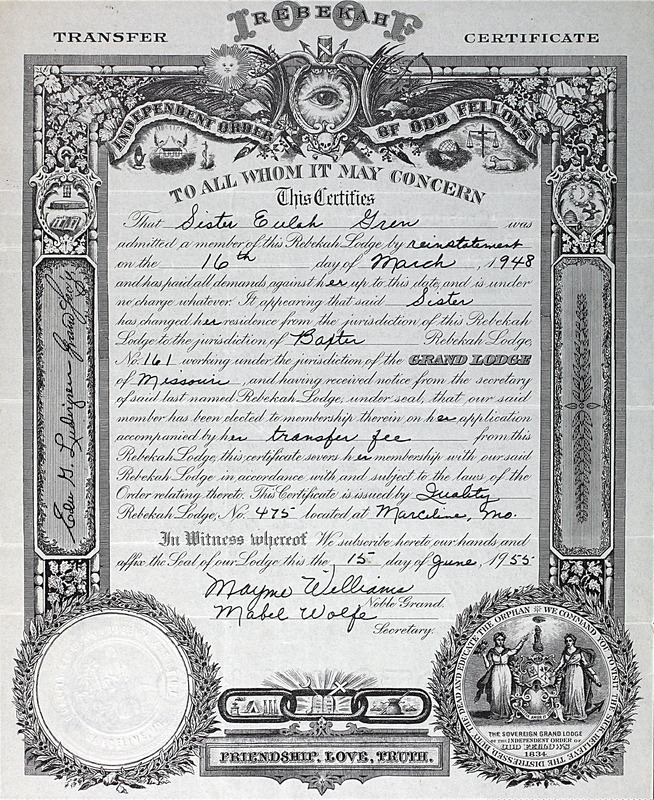 I REBEKAH O O F
TRANSFER CERTIFICATE
INDEPENDENT ORDER OF ODD FELLOWS
TO ALL WHOM IT MAY CONCERN
This Certifies
That Sister Eulah Gren was
admitted a member of this Rebekah Lodge by reinstatement
on the 16th day of March, 1948
and has paid all demands against her up to this date, and is under
no charge whatever. It appearing that said Sister
has changed her residence from the jurisdiction of this Rebekah
Lodge to the jurisdiction of Baxter Rebekah Lodge,
No. 161 working under the jurisdiction of the GRAND LODGE
of Missouri, and having received notice from the secretary
of said last named Rebekah Lodge, under seal, that our said
member has been elected to membership therein on her application
accompanied by her transfer fee from this
Rebekah Lodge, this certificate severs her membership with our said
Rebekah Lodge in accordance with and subject to the laws of the
Order relating thereto. This Certificate is issued by Quality
Rebekah Lodge, No. 475 located at Marceline, Mo.
In Witness whereof We subscribe hereto our hands and
affix the Seal of our Lodge this the 15 day of June, 1955
Mayme Williams
Noble Grand.
Mabel Wolfe
Secretary.
WE COMMAND YOU TO VISIT THE SICK, RELIEVE THE DISTRESSED, BURY THE DEAD AND EDUCATE THE ORPHAN
THE SOVEREIGN GRAND LODGE
OF THE INDEPENDENT ORDER OF
ODD FELLOWS
1834
FRIENDSHIP, LOVE, TRUTH.